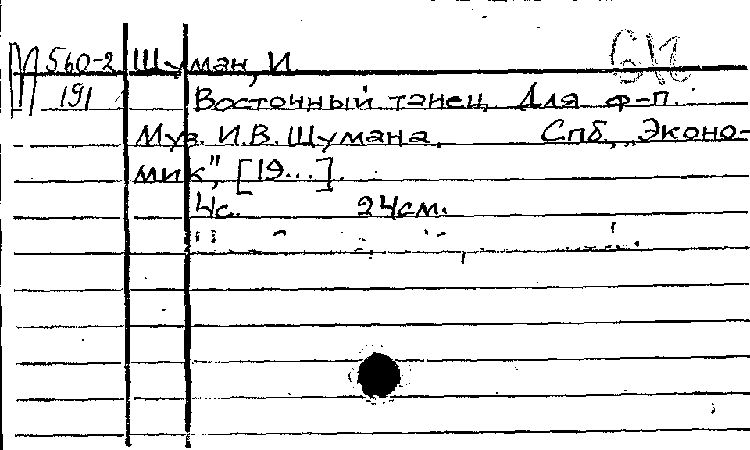 П 560-2 Шуман, И.
191 Восточный танец. Для ф-п.
Муз. И.В. Шумана. Спб., "Эконо-
мик", [19...].
4с. 24см.